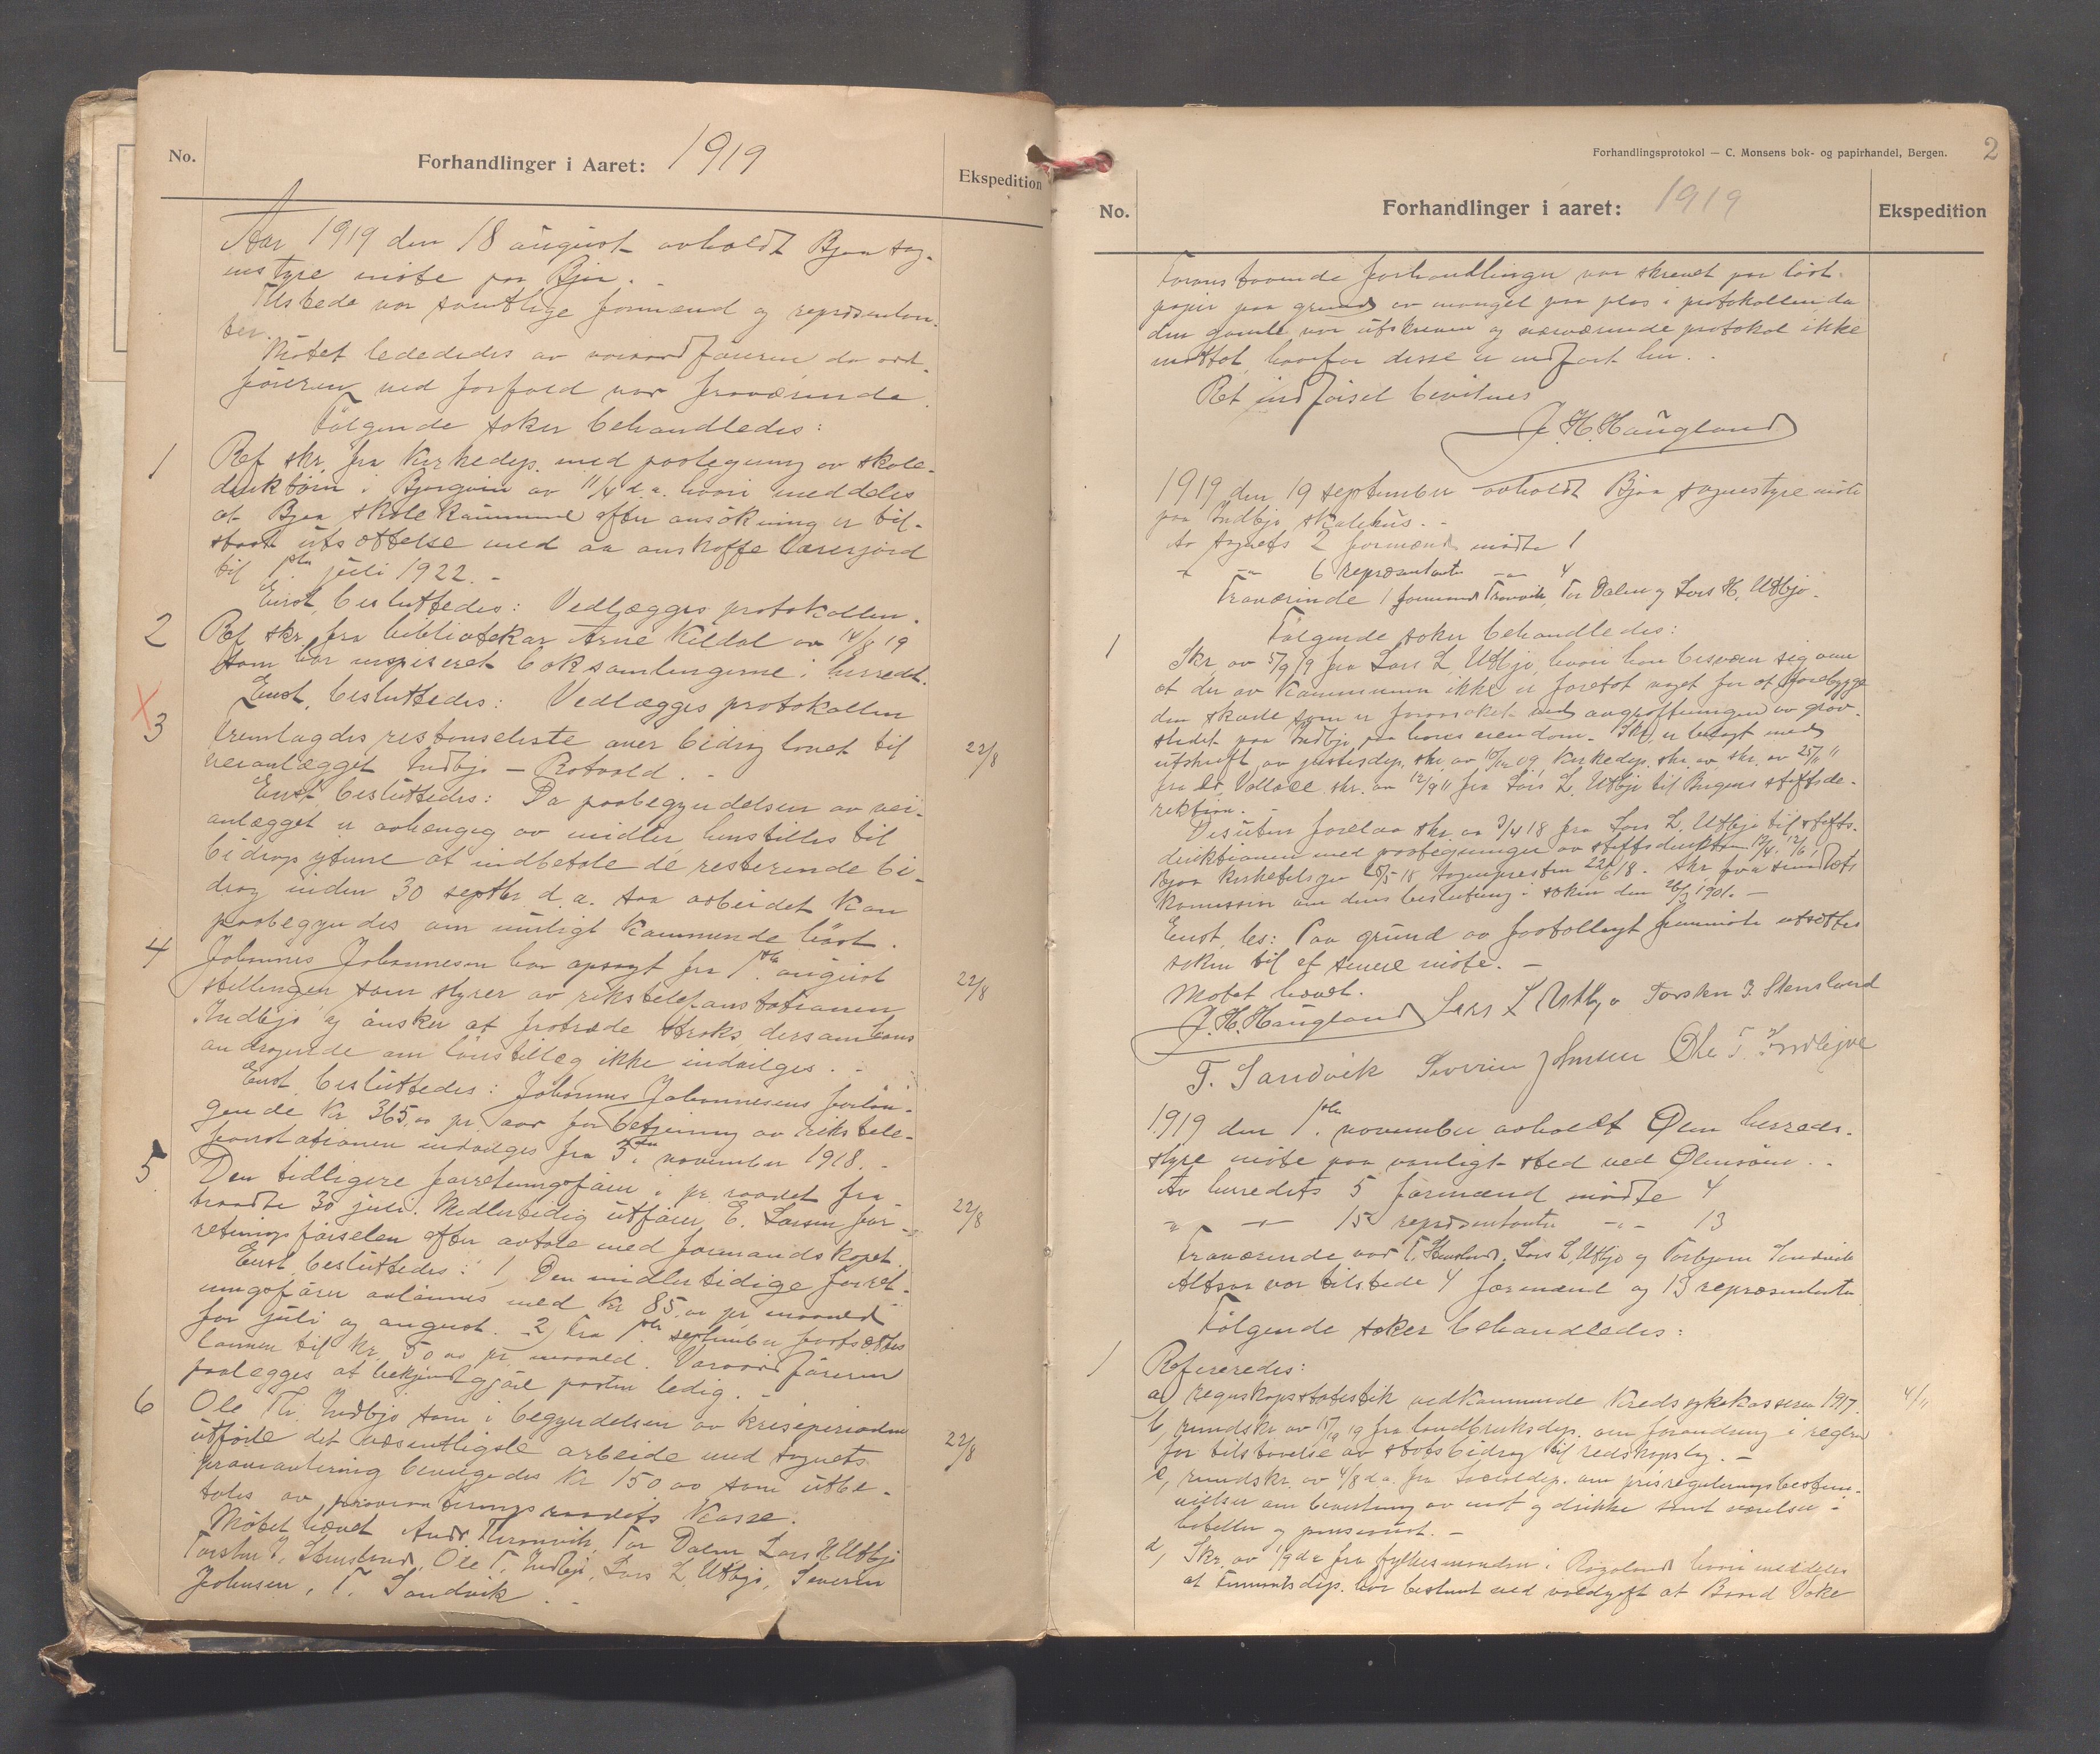 No.
Forhandlinger i Aaret: 1919
Ekspedition
Aar 1919 den 18 august avholdt Bjoa sog-
nestyre møte paa Bjoa.
Tilstede var samtlige formænd og repræsentan-
ter.
Møtet lededes av varaordføreren da ord-
føreren ved forfald var fraværende.
Følgende saker behandledes:
1 Ref skr. fra Kirkedep. med paategning av skole-
direktøren i Bjørgvin av 11/4 d.a. hvori meddeles
at Bjoa skolekommune efter ansøkning er til-
staat utsættelse med aa anskaffe lærerjord
til 1ste juli 1922. -
Enst. besluttedes: Vedlægges protokollen.
2 Ref skr. fra bibliotekar Arne Kildal av 14/8 19
som har inspiseret boksamlingerne i herredet.
Enst. besluttedes: Vedlægges protokollen
X
3 Fremlagdes restanseliste over bidrag lovet til
veianlægget Indbjo - Rotvold. -
22/8
Enst. besluttedes: Da paabegyndelsen av vei-
anlægget er avhengig av midler, henstilles til
bidragsyterne at indbetale de resterende bi-
drag inden 30 septbr. d.a. saa arbeidet kan
paabegyndes om muligt kommende høst.
4 Johannes Johannesen har opsagt fra 1ste august
stillingen som styrer av rikstelefonstationen
22/8
Indbjo og ønsker at fratræde straks, dersom hans
andragende om lønstillæg ikke indvilges. -
Enst. besluttedes: Johannes Johannesens forlan-
gende kr 365.00 pr. aar for betjening av rikstele-
fonstationen indvilges fra 3die november 1918. -
5 Den tidligere forretningsfører i pr. raadet fra-
traadte 30 juli. Midlertidig utfører E. Larsen for-
22/8
retningsførselen efter avtale med formandskapet.
Enst. besluttedes: 1, Den midlertidige forret-
ningsfører avlønnes med kr 85.00 pr. maaned
for juli og august. 2, Fra 1ste september fastsættes
lønnen til kr. 50 00 pr. maaned. Varaordføreren
paalegges at bekjendtgjøre posten ledig. -
6 Ole Th. Indbjo som i begyndelsen av kriseperioden
utførte det væsentligste arbeide med sognets
22/8
proviantering bevilgedes kr 150 00 som utbe-
tales av provianteringsraadets kasse.
Møtet hævet Andr. Thronvik, Tor Dalen Lars H Utbjo
Torsten I. Stensland, Ole T. Indbjo, Lars L Utbjo, Severin
Johnsen, T. Sandvik. -
Forhandlingsprotokol — C. Monsens bok- og papirhandel, Bergen.
2
No.
Forhandlinger i aaret: 1919
Ekspedition
Foranstaaende forhandlinger var skrevet paa løst
papir paa grund av mangel paa plas i protokollen da
den gamle var utskreven og nærværende protokol ikke
mottat, hvorfor disse er indført her. -
Ret indførsel bevitnes
J. H. Haugland
1919 den 19 september avholdt Bjoa sognestyre møte
paa Indbjo skolehus. -
Av sognets 2 formænd møtte 1
" -"- 6 repræsentanter -"- 4
Fraværende 1 formand Tronvik, Tor Dalen og Lars H. Utbjo.
Følgende saker behandledes:
1 Skr. av 5/9 19 fra Lars L. Utbjo, hvori han besværer sig over
at der av kommunen ikke er foretat noget for at forebygge
den skade som er foraarsaket ved angrøftningen av grav-
stedet paa Indbjo, paa hans eiendom. Skr. er belagt med
utskrift av justisdep. skr. av 10/12 09 Kirkedep. skr. av skr. av 25/11 11
fra Vollæe skr. av 12/9 11 fra Lars L. Utbjo til Bergens stiftsdi-
rektion. -
Desuten forelaa skr. av 3/4 18 fra Lars L. Utbjo til stifts-
direktionen med paategninger av stiftsdirektøren 12/4, 12/6,
Bjoa kirketilsyn 28/5 18 sognepresten 22/6 18. Skr. fra sundhets
komissionen om dens beslutning i saken den 26/3 1901. -
Enst. bes: Paa grund av faatalligt fremmøte utsættes
saken til et senere møte. -
Møtet hævet.
J. H. Haugland Lars L Utbjo Torsten I. Stensland
T. Sandvik Severin Johnsen Ole T. Indbjoe
1919 den 1ste november avholdt Ølen herreds-
styre møte paa vanligt sted ved Ølensøen. -
Av herredets 5 formænd møtte 4
" -"- 15 repræsentanter -"- 13
Fraværende var T. Stensland, Lars L. Utbjo og Torbjørn Sandvik
Altsaa var tilstede 4 formænd og 13 repræsentanter
Følgende saker behandledes:
1 Refereredes:
a, regnskapsstatestik vedkommende kredssykekassen 1917.
4/11
b, rundskr. av 15/9 19 fra landbruksdep. om forandring i reglene
for tilstaaelse av statsbidrag til redskapslag. -
c, rundskr. av 4/8 d.a. fra socialdep. om prisreguleringsbestem-
melser om bevertning av mat og drikke samt værelser i
hoteller og pensionat. -
d, Skr. av 1/9 d.a. fra fylkesmanden i Rogaland hvori meddeles
at Finansdep. har bestemt ved voldgift at Baard Vake